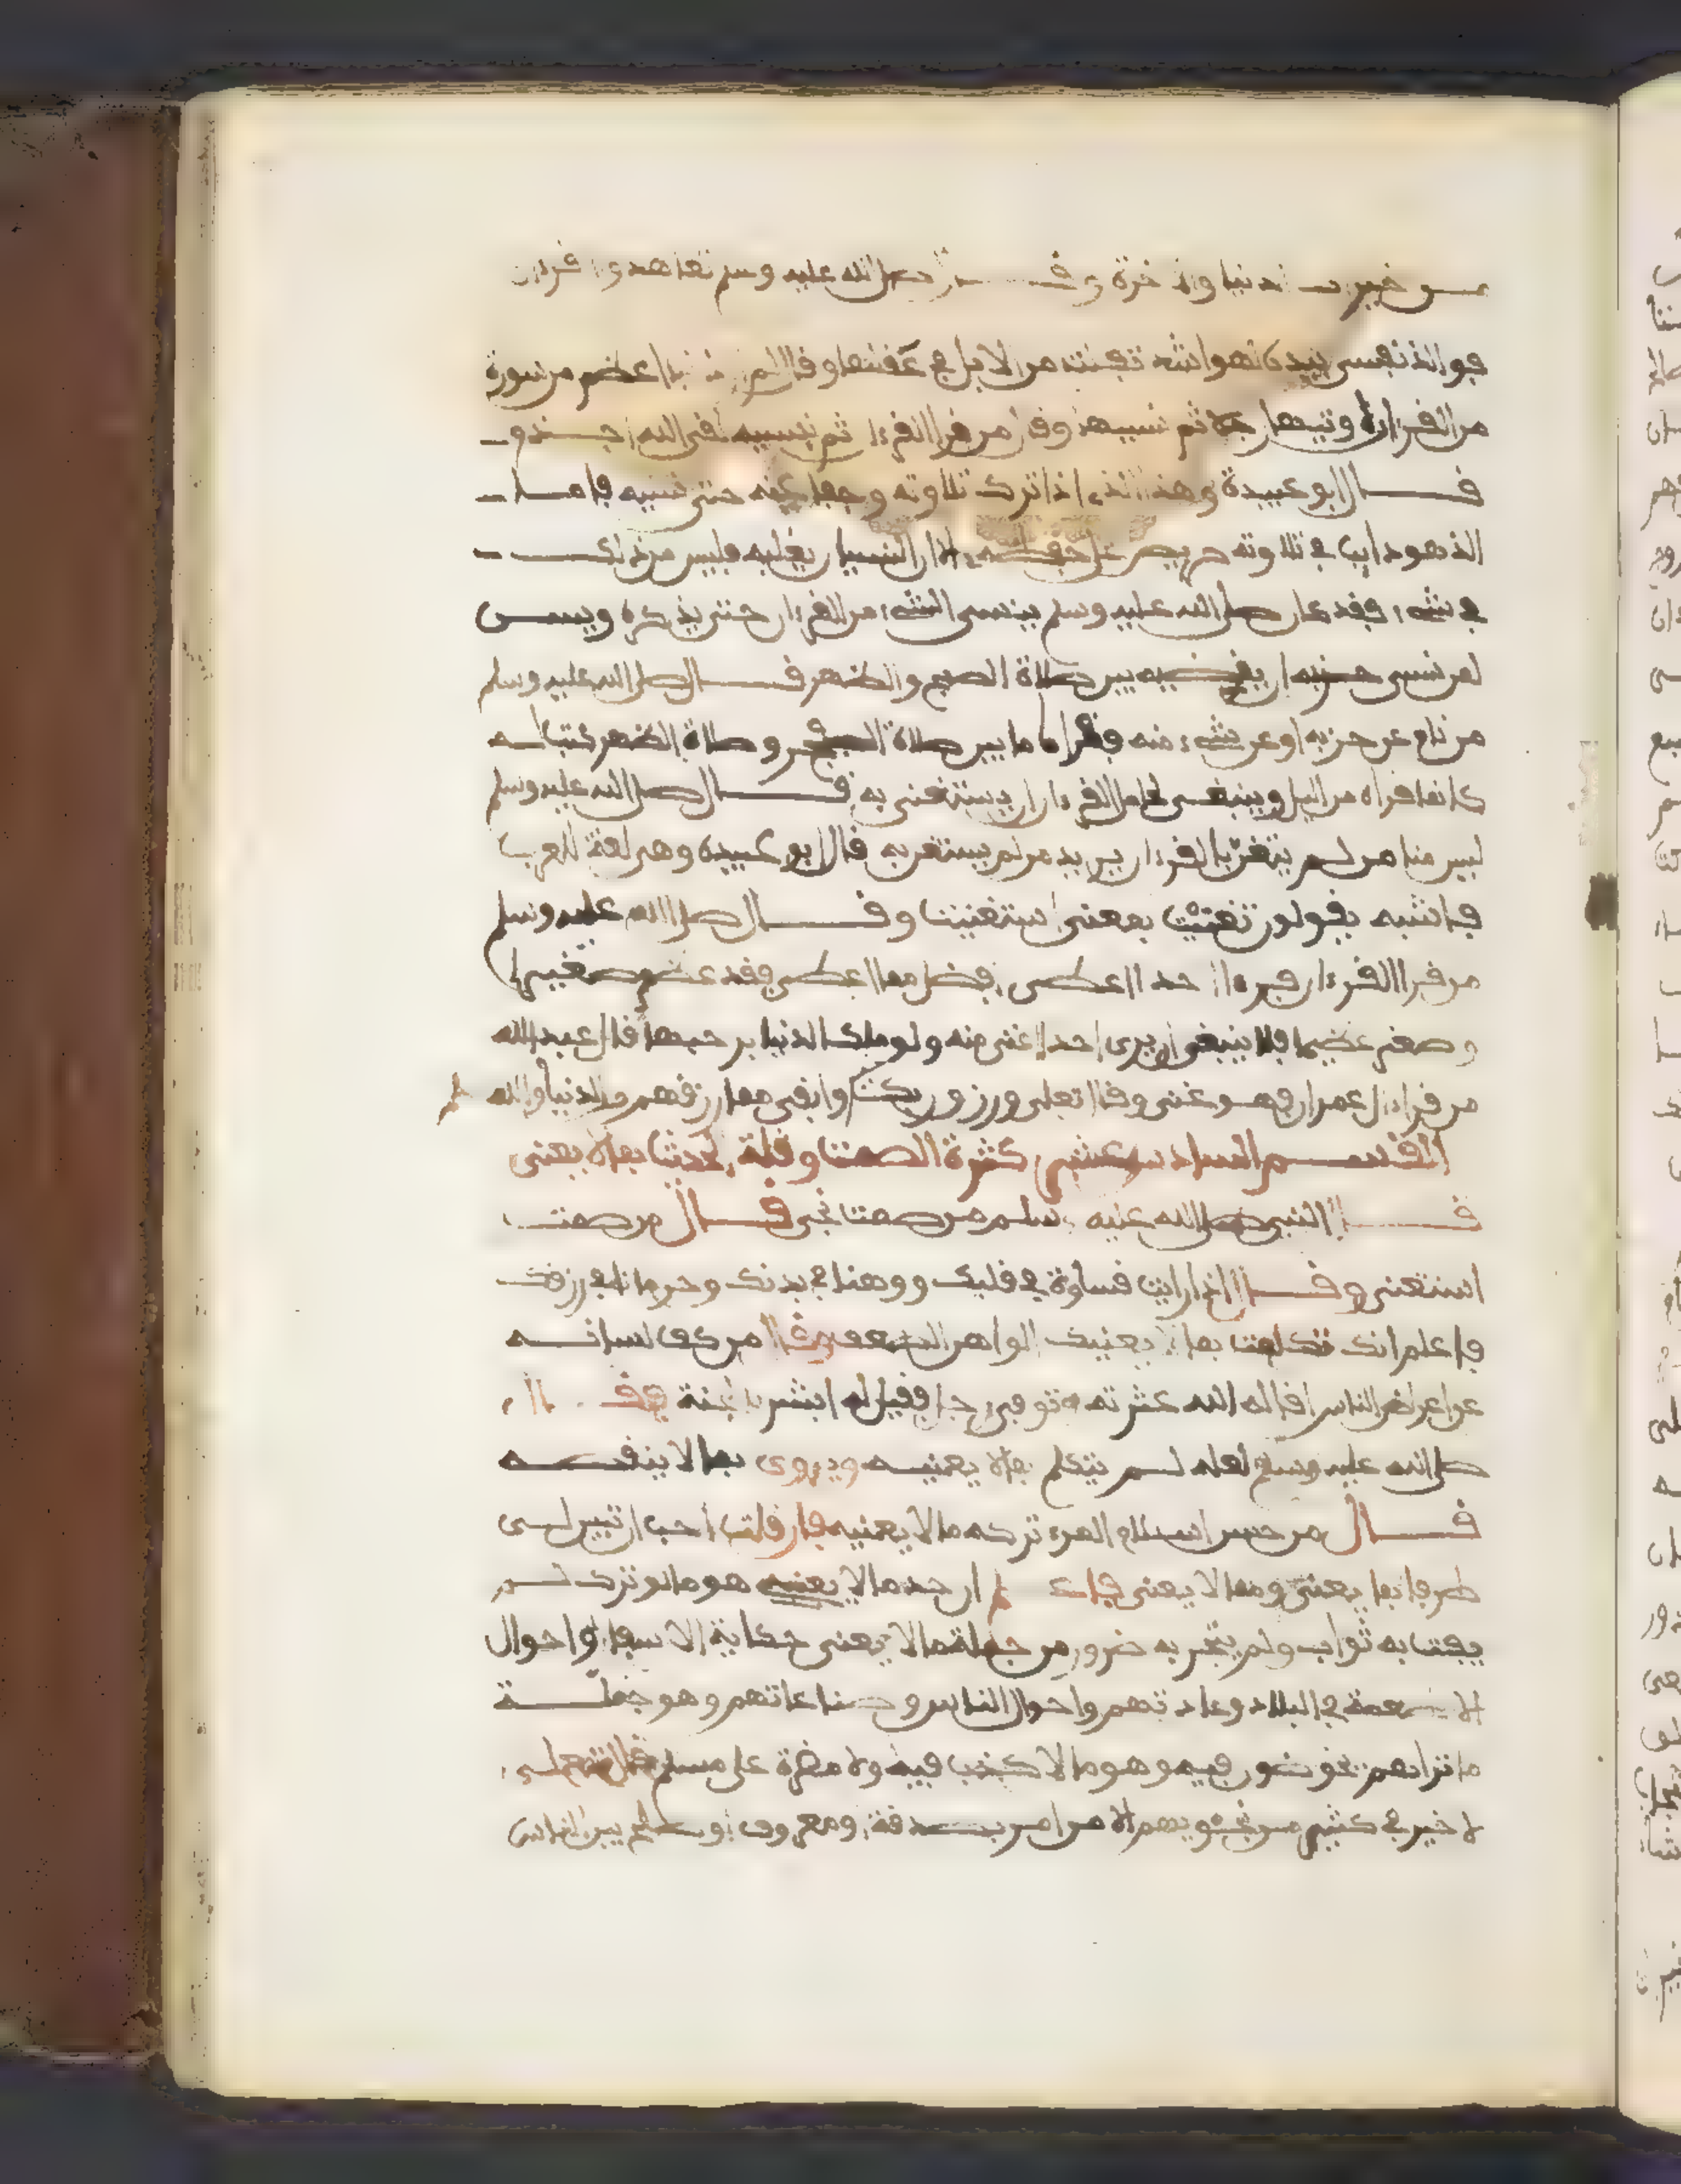 من خير الدنيا والاخرة وقال صلى الله عليه وسلم تعاهدوا القرءان
فوالذي نفسي بيده لهو اشد تفلتا من الابل في عقلها وقال لم ذنبا اعظم من سورة
من القرءان اوتيها رجل ثم نسيها وقال من قرا القرءان ثم ينسيه لقى الله اجذم
قال ابو عبيدة وهذا الذي اذا ترك تلاوته وجفا عنه حتى نسيه فاما
الذي هو دايب في تلاوته حريص على حفظه الا ان النسيان يغلبه فليس من ذلك
في شيء فقد كان صلى الله عليه وسلم ينسى الشيء من القرءان حتى يذكره ويسن
لمن نسي حزبه ان يقضيه بين صلاة الصبح والظهر قال صلى الله عليه وسلم
من نام عن حزبه او عن شيء منه فقراه ما بين صلاة الفجر وصلاة الظهر كتب له
كانما قراه من اليل وينبغي لحامل القرءان ان يستغني به قال صلى الله عليه وسلم
ليس منا من لم يتغن بالقرءان يريد من لم يستغن به قال ابو عبيدة وهي لغة للعرب
فاشية يقولون تغنيت بمعنى استغنيت وقال صلى الله عليه وسلم
من قرا القرءان فرءا احدا اعطي افضل مما اعطي فقد عظم صغيرا
وصغر عظيما فلا ينبغي ان يرى احدا اغنى منه ولو ملك الدنيا برحبها قال عبد الله
من قرا ءال عمران فهو غني وقال تعلى ورزق ربك وابقى مما رزقهم من الدنيا والله
القسم السادس عشر كثرة الصمت وقلة الحديث بما لا يعني
قال النبي صلى الله عليه وسلم من صمت نجى قال من صمت
استغنى وقال اذا رايت قساوة في قلبك ووهنا في بدنك وحرمانا في رزقك
فاعلم انك تكلمت بما لا يعنيك الواهن الضعف وقال من كف لسانه
عن اعراض الناس اقاله الله عثرته وتوفي رجل فقيل له ابشر بالجنة فقال
صلى الله عليه وسلم لعله لم يتكلم بما لا يعنيه ويروى بما لا ينقصه
قال من حسن اسلام المرء تركه ما لا يعنيه فان قلت احب ان تبين لي
طرفا بما يعني ومما لا يعني فاعلم ان حد ما لا يعنيه هو ما لو ترك لم
يفت به ثواب ولم ينجر به ضرر ومن جملة ما لا يعني حكاية الاسفار واحوال
الاطعمة في البلاد وعادتهم واحوال الناس وصناعاتهم وهو جملة
ما تراهم يخوضون فيه وهو ما لا كذب فيه ولا مضرة على مسلم قال تعلى
لا خير في كثير من نجويهم الا من امر بصدقة او معروف او اصلح بين الناس